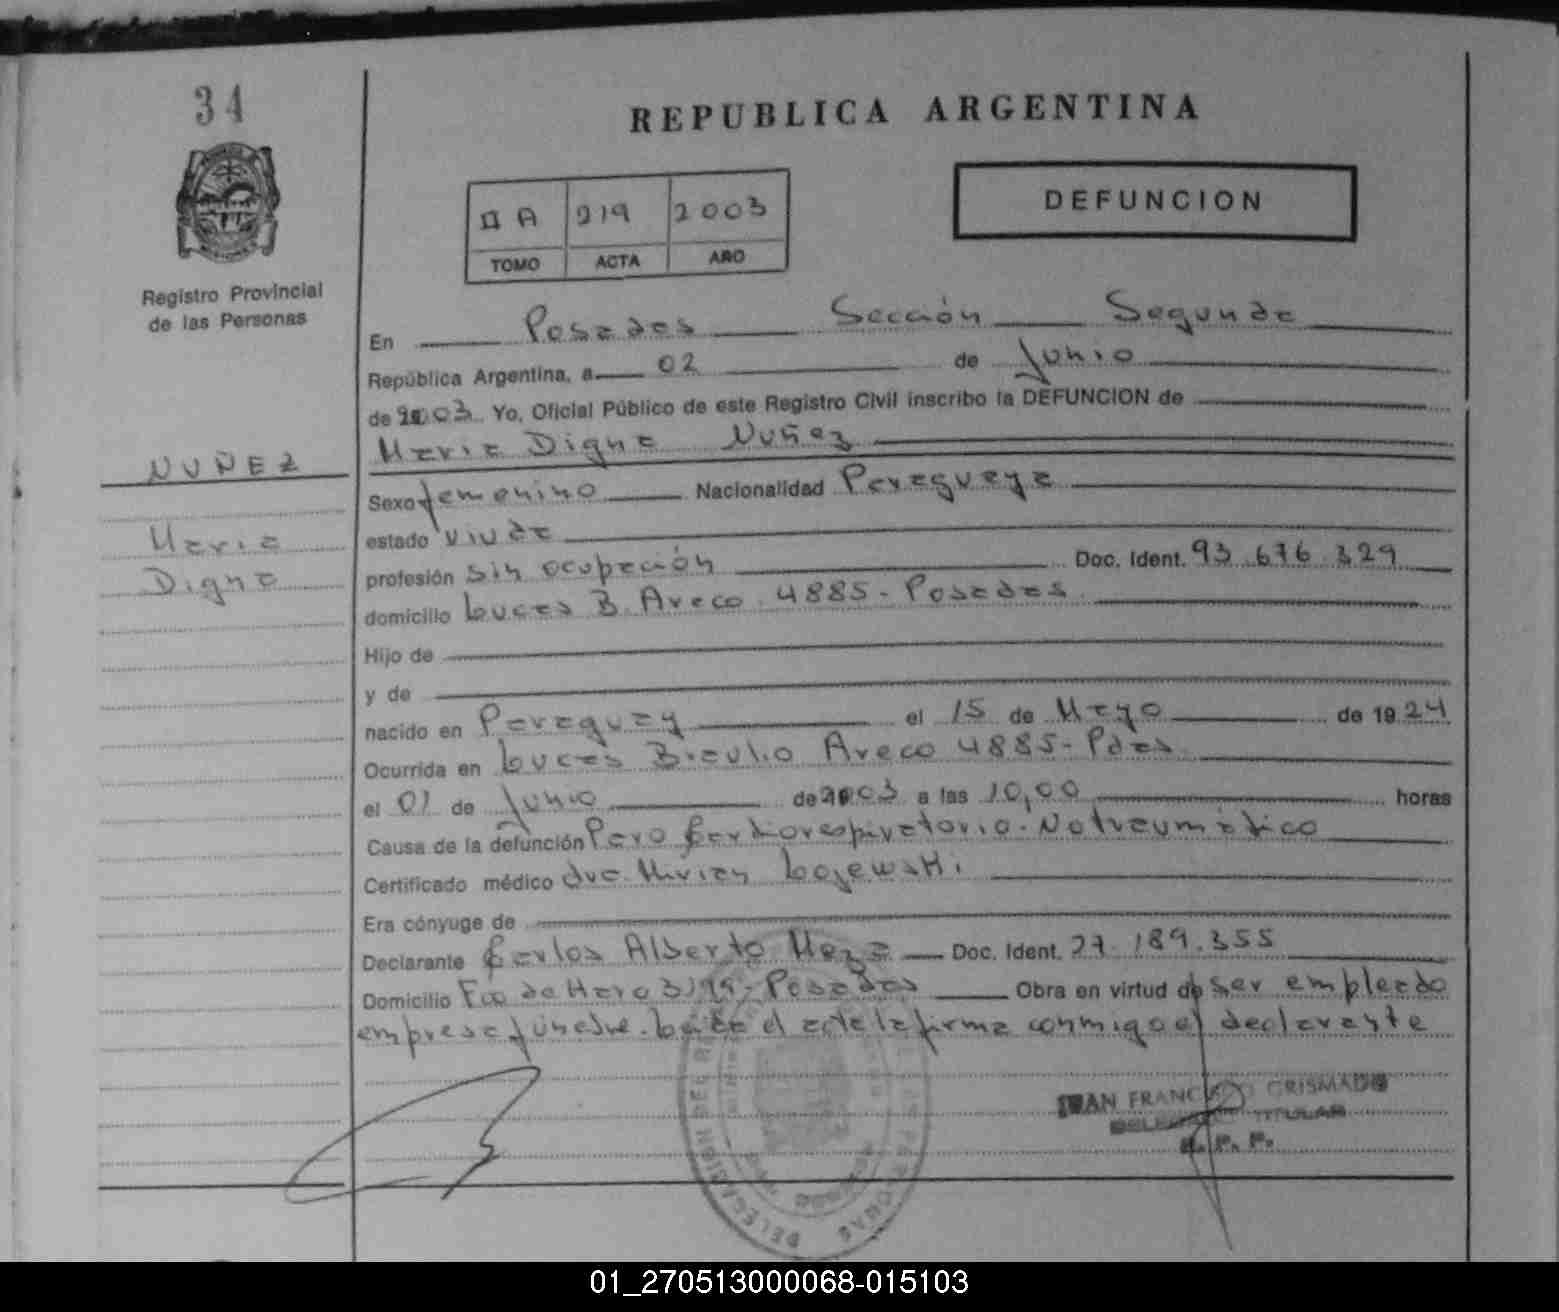 34
REPUBLICA ARGENTINA
II A 219 2003
TOMO ACTA AÑO
DEFUNCION
Registro Provincial
de las Personas
En Posadas Sección Segunda
República Argentina, a 02 de Junio
de 2003 Yo, Oficial Público de este Registro Civil inscribo la DEFUNCION de
Maria Digna Nuñez
NUÑEZ
Maria
Digna
Sexo femenino Nacionalidad Paraguaya
estado viuda
profesión sin ocupación Doc. Ident. 93.676.329
domicilio Lucas B. Areco 4885 - Posadas
Hijo de
y de
nacido en Paraguay el 15 de Mayo de 1924
Ocurrida en Lucas Braulio Areco 4885 - Pdas
el 01 de Junio de 2003 a las 10,00 horas
Causa de la defunción Paro Cardiorespiratorio. No traumático
Certificado médico dra. Mirian
Era cónyuge de
Declarante Carlos Alberto Meza Doc. Ident. 27.189.355
Domicilio Fco de Haro Posadas Obra en virtud de ser empleado
empresa fúnebre. el acta la firma conmigo el declarante
JUAN FRANCISCO GRISMADO
DELEGADO TITULAR
R. P. P.
01_270513000068-015103